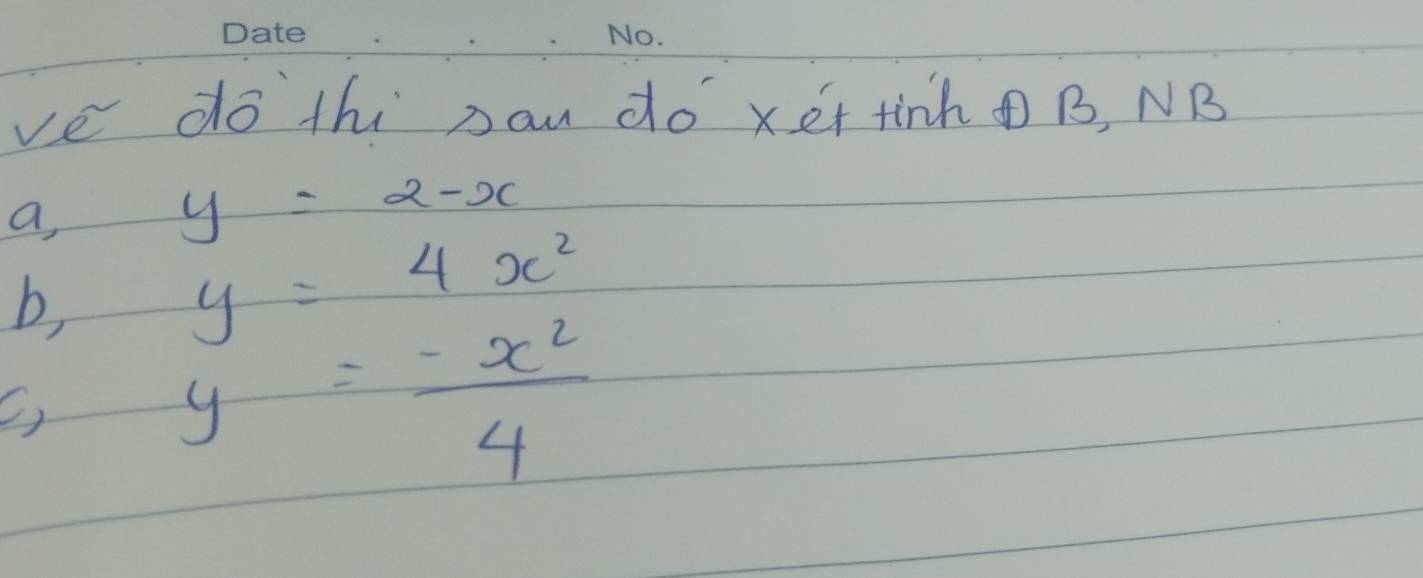 Date . . . No.
vẽ đồ thị sau đó xét tính ĐB, NB
a, y = 2-x
b, y = 4x²
c, y = -x²/4